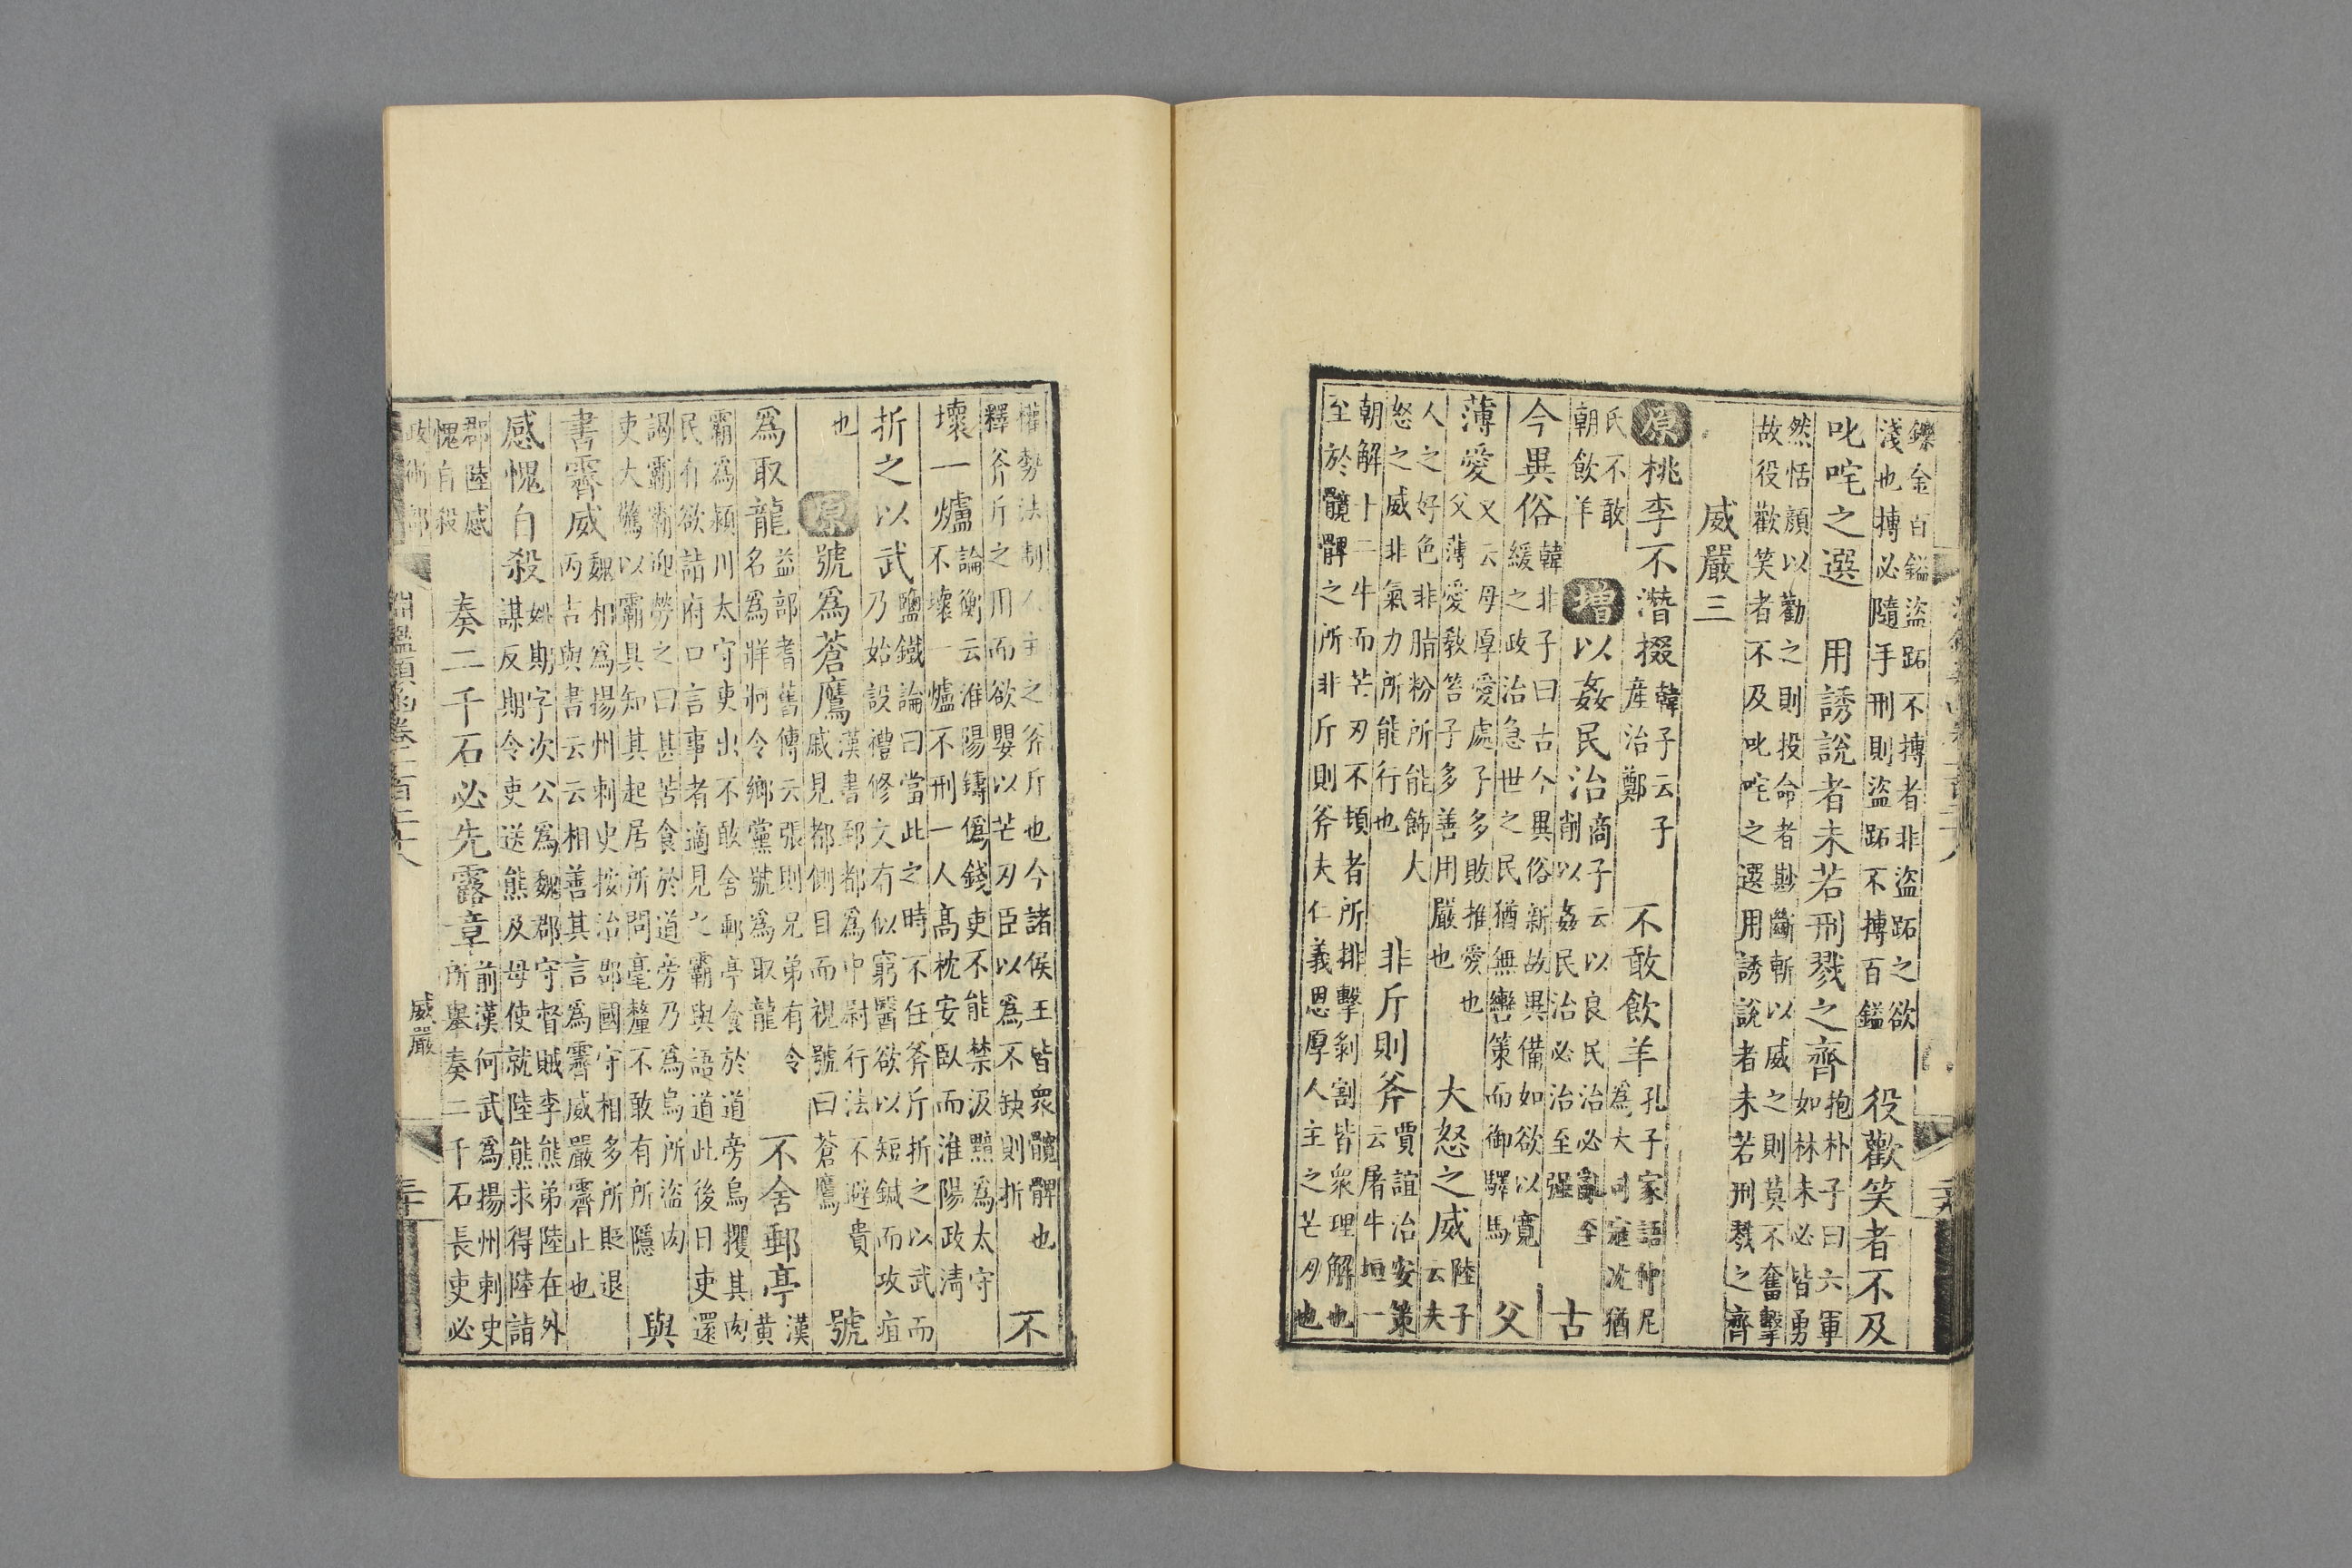 鑠金百鎰盜跖不搏者非盜跖之欲
淺也搏必隨手刑則盜跖不搏百鎰
役歡笑者不及
叱咤之選　用誘說者未若刑戮之齊
抱朴子曰六軍
如林未必皆勇
然恬顏以勸之則投命者尠斷斬以威之則莫不奮擊
故役歡笑者不及叱咤之選用誘說者未若刑戮之齊
威嚴三
原桃李不潛掇
韓子云子
產治鄭
不敢飲羊
孔子家語仲尼
爲大司寇沈猶
氏不敢
朝飲羊
增以姦民治
商子云以良民治必亂至
削以姦民治必治至强
古
今異俗
韓非子曰古今異俗新故異備如欲以寬
緩之政治急世之民猶無轡策而御驛馬
父
薄愛
又云母厚愛處子多敗推愛也
父薄愛教笞子多善用嚴也
大怒之威
陸子
云夫
人之好色非脂粉所能飾大
怒之威非氣力所能行也
非斤則斧
賈誼治安策
云屠牛垣一
朝解十二牛而芒刃不頓者所排擊剝割皆衆理解也
至於髖髀之所非斤則斧夫仁義恩厚人主之芒刃也
權勢法制人主之斧斤也今諸侯王皆衆髖髀也
釋斧斤之用而欲嬰以芒刃臣以爲不缺則折
不
壞一爐
論衡云淮陽鑄偽錢吏不能禁汲黯爲太守
不壞一爐不刑一人高枕安臥而淮陽政清
折之以武
鹽鐵論曰當此之時不任斧斤折之以武而
乃始設禮修文有似窮醫欲以短鍼而攻疽
也
原號爲蒼鷹
漢書郅都爲中尉行法不避貴
戚見都側目而視號曰蒼鷹
號
爲取龍
益部耆舊傳云張則兄弟有令
名爲牂牁令鄉黨號爲取龍
不舍郵亭
漢
黄
霸爲潁川太守吏出不敢舍郵亭食於道旁烏攫其肉
民有欲詣府口言事者適見之霸與語道此後日吏還
謁霸霸迎勞之曰甚苦食於道旁乃爲烏所盜肉
吏大驚以霸具知其起居所問毫釐不敢有所隱
與
書霽威
魏相爲揚州刺史按治郡國守相多所貶退
丙吉與書云云相善其言爲霽威嚴霽止也
感愧自殺
姚期字次公爲魏郡守督賊李熊弟陸在外
謀反期令吏送熊及母使就陸熊求得陸詣
郡陸感
愧自殺
奏二千石必先露章
前漢何武爲揚州刺史
所舉奏二千石長吏必
淵鑑類函卷一百二十八
威嚴
三十